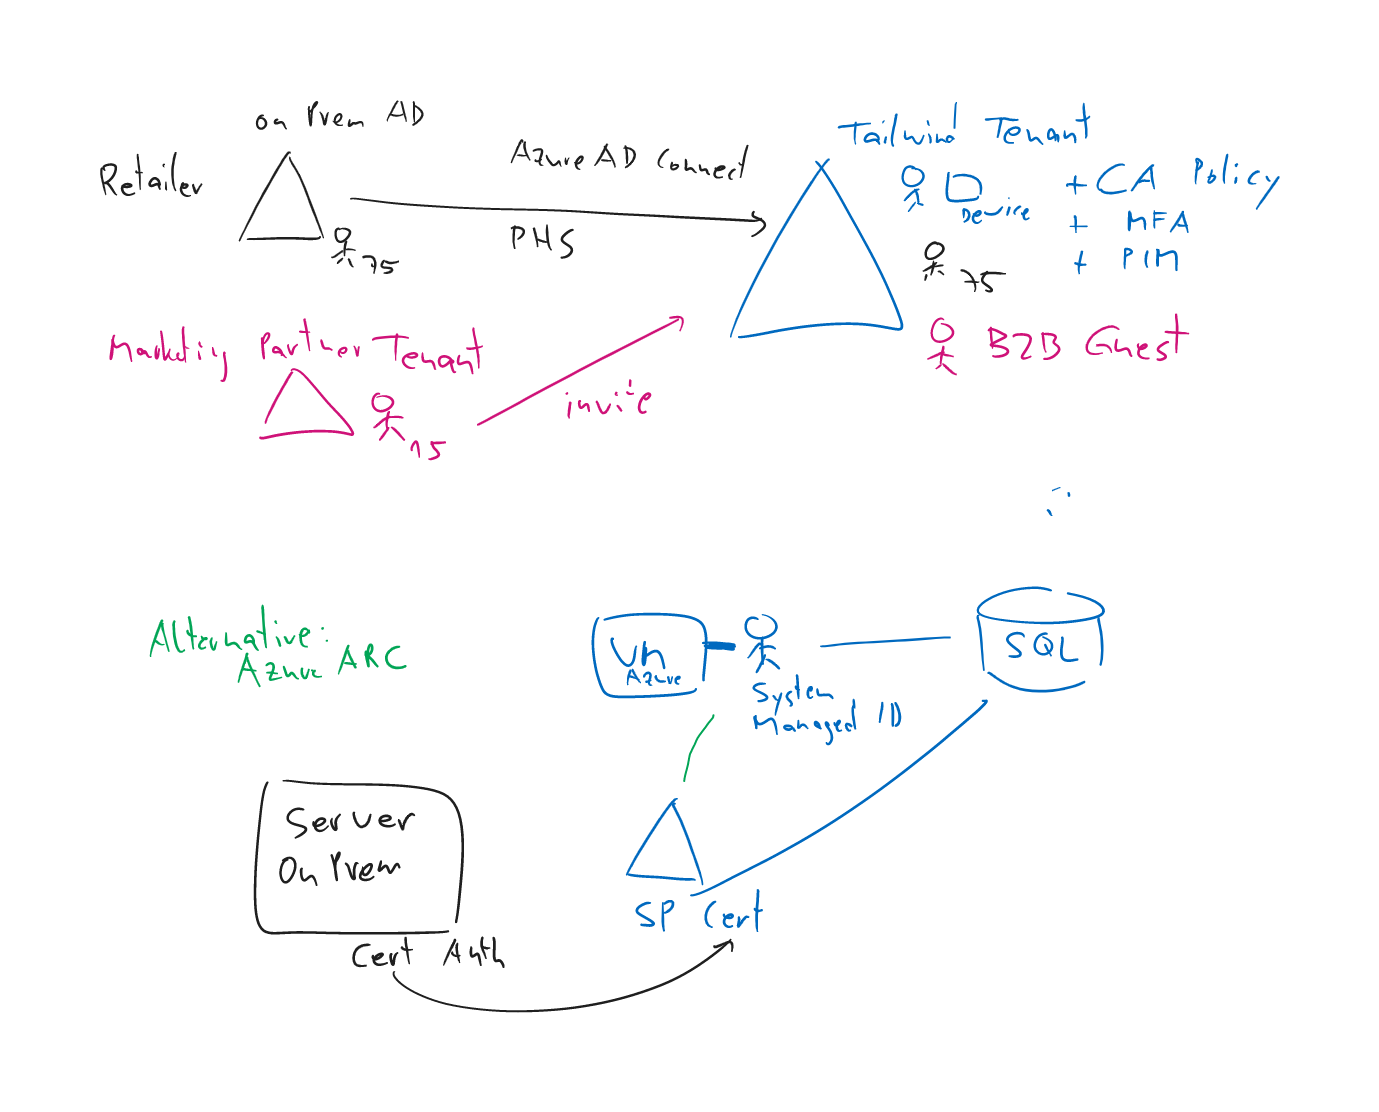 on Prem AD
Retailer
75
Azure AD Connect
PHS
Tailwind Tenant
Device
+ CA Policy
+ MFA
+ PIM
75
B2B Guest
Marketing Partner Tenant
15
invite
Alternative:
Azure ARC
VM
Azure
System
Managed ID
SQL
Server
On Prem
Cert Auth
SP Cert